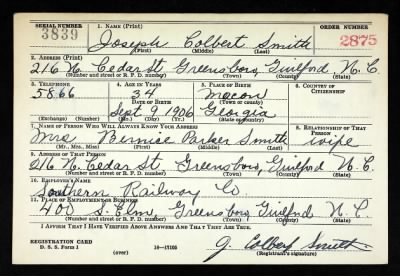 SERIAL NUMBER 1. NAME (Print) ORDER NUMBER
3839 Joseph Colbert Smith 2875
(First) (Middle) (Last)
2. ADDRESS (Print)
216 N. Cedar St. Greensboro, Guilford, N.C.
(Number and street or R. F. D. number) (Town) (County) (State)
3. TELEPHONE 4. AGE IN YEARS 5. PLACE OF BIRTH 6. COUNTRY OF CITIZENSHIP
5866 34 Macon
DATE OF BIRTH (Town or county)
Sept 9 1906 Georgia
(Exchange) (Number) (Mo.) (Day) (Yr.) (State or country)
7. NAME OF PERSON WHO WILL ALWAYS KNOW YOUR ADDRESS 8. RELATIONSHIP OF THAT PERSON
Mrs. Bernice Parker Smith wife
(Mr., Mrs., Miss) (First) (Middle) (Last)
9. ADDRESS OF THAT PERSON
216 N. Cedar St. Greensboro, Guilford N.C.
(Number and street or R. F. D. number) (Town) (County) (State)
10. EMPLOYER'S NAME
Southern Railway Co
11. PLACE OF EMPLOYMENT OR BUSINESS
400 S. Elm Greensboro, Guilford N.C.
(Number and street or R. F. D. number) (Town) (County) (State)
I AFFIRM THAT I HAVE VERIFIED ABOVE ANSWERS AND THAT THEY ARE TRUE.
REGISTRATION CARD
D. S. S. Form 1 (over) 16—17105 J. Colbert Smith
(Registrant's signature)